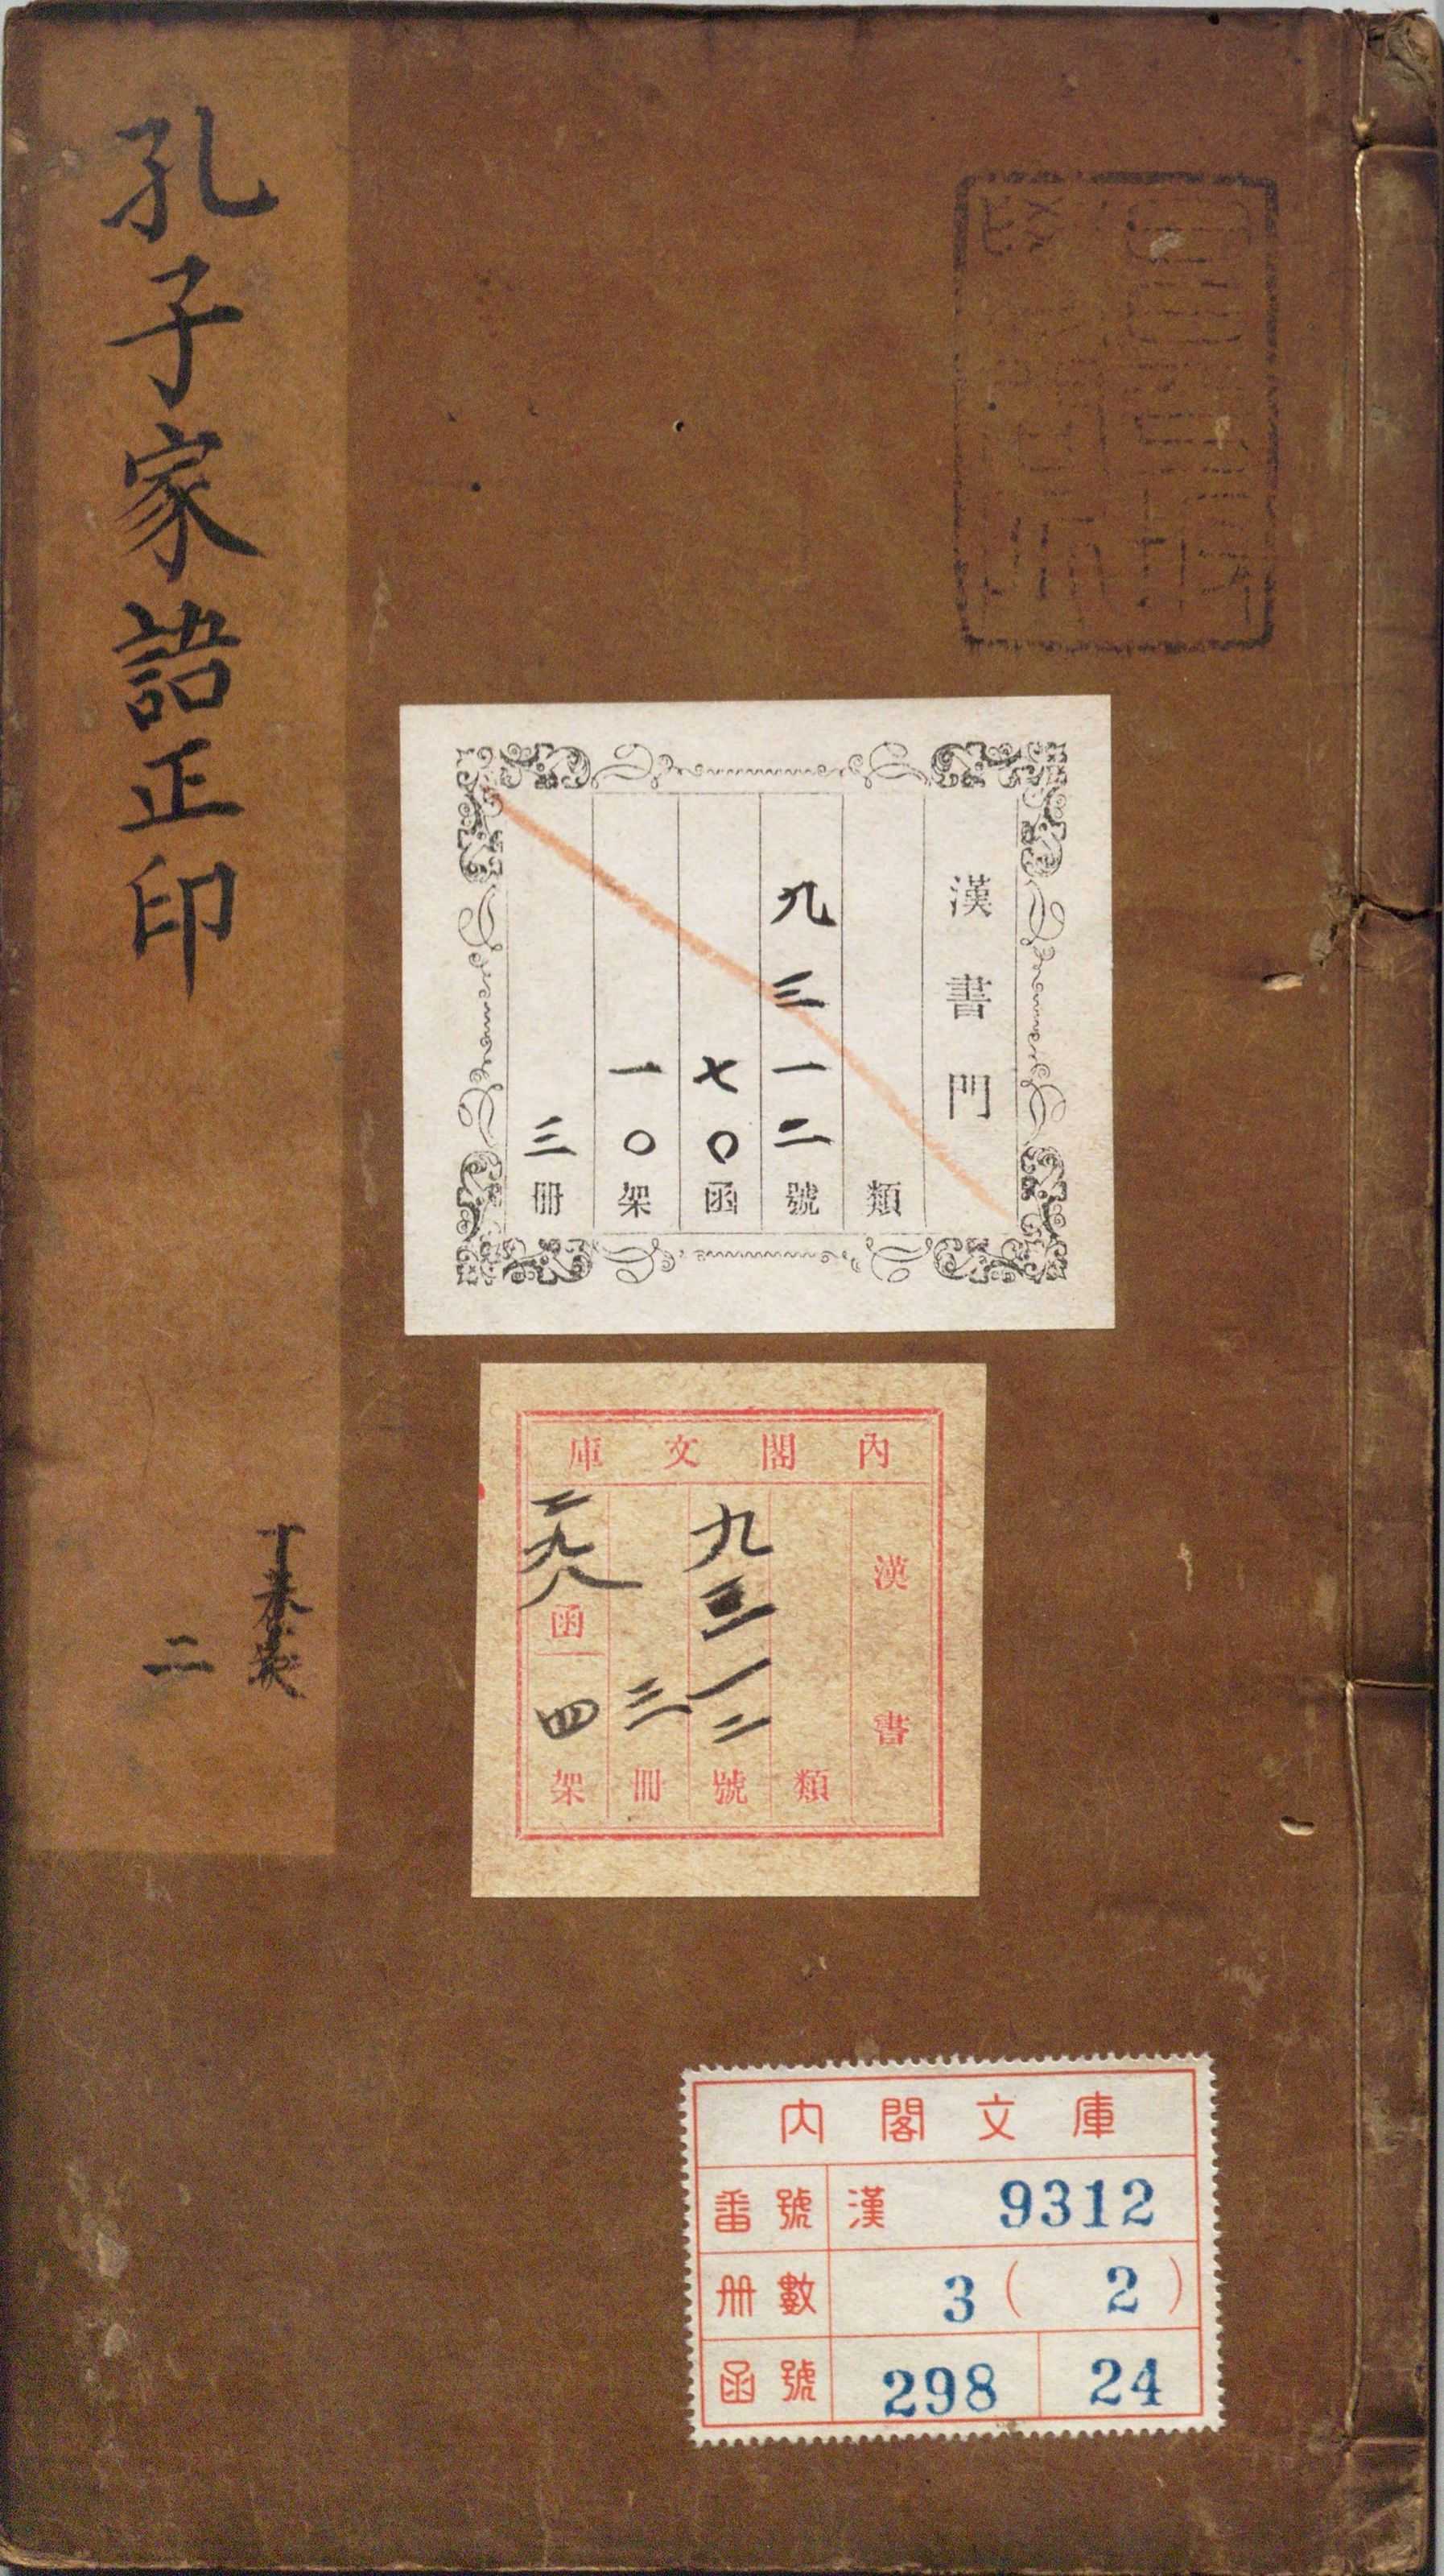 孔子家語正印
二
漢書門
類
九三一二號
七〇函
一〇架
三冊
內閣文庫
漢書
類
九三一二號
三冊
二九八函
四架
内閣文庫
番號 漢 9312
冊數 3 ( 2 )
函號 298 24